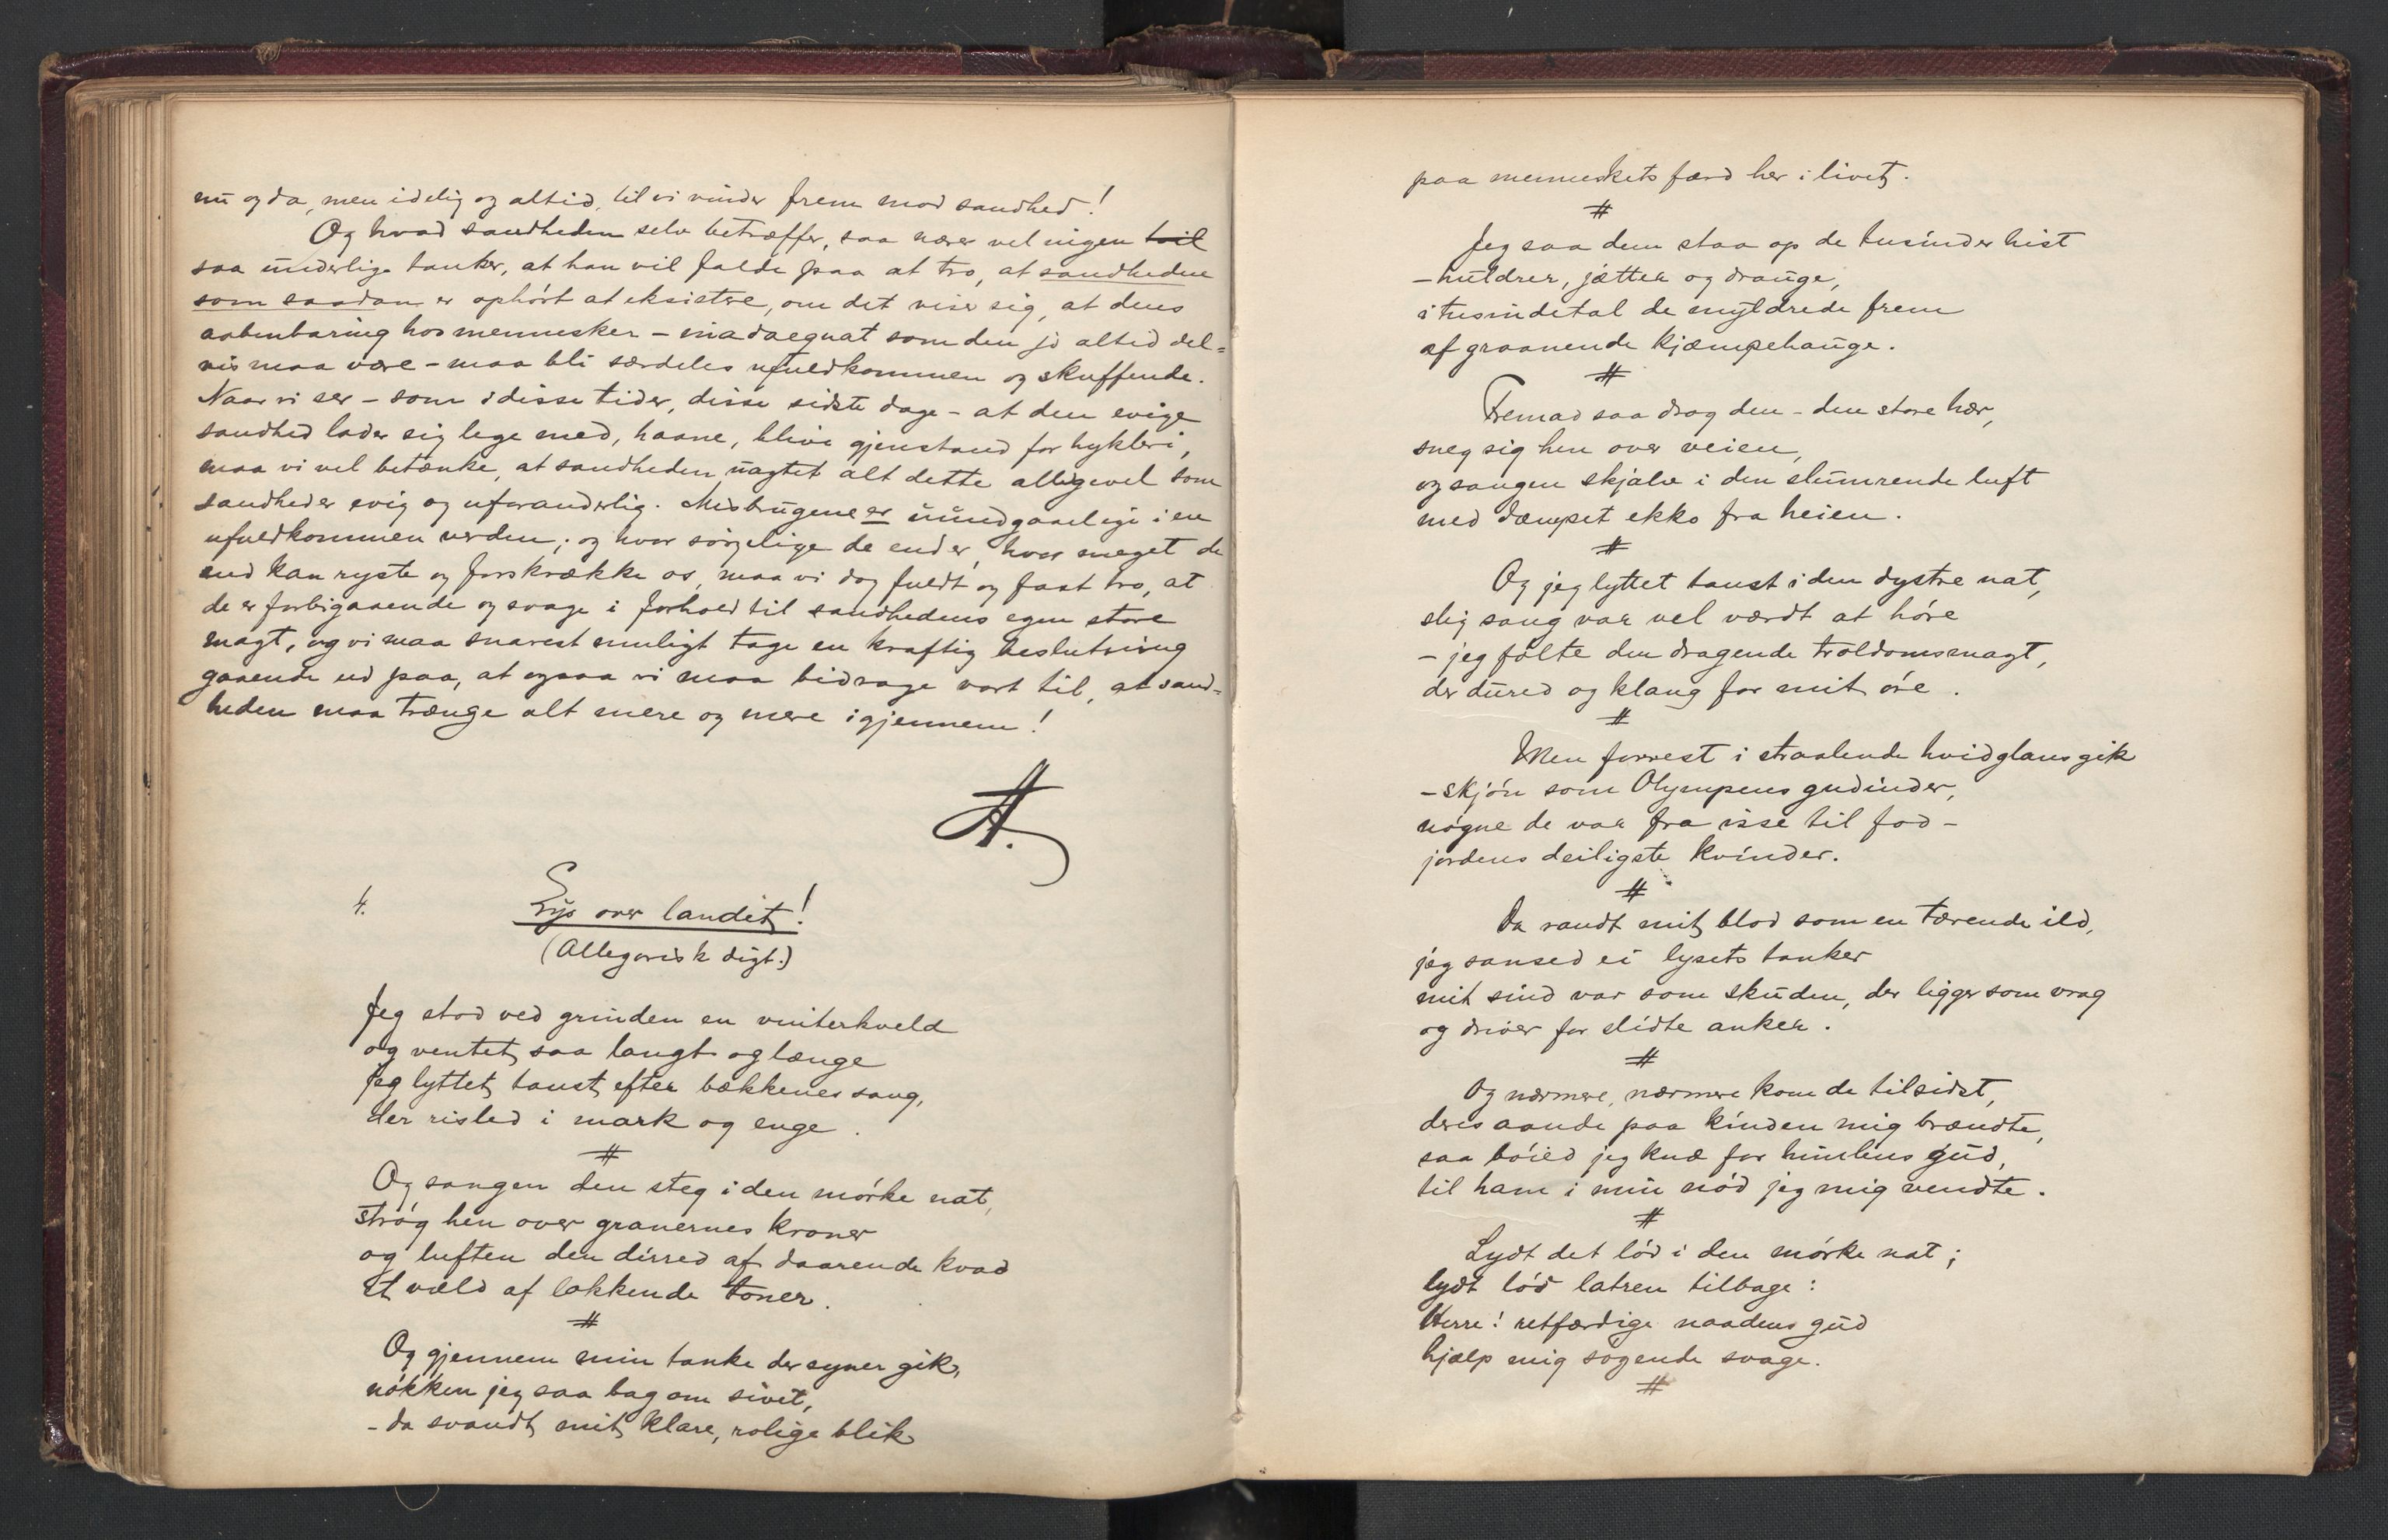 nu og da, men idelig og altid, til vi vinder frem mod sandhed!
Og hvad sandheden selv betræffer, saa nærer vel ingen tvil
saa underlige tanker, at han vil falde paa at tro, at sandheden
som saadan er ophørt at eksistere, om det viser sig, at dens
aabenbaring hos mennesker – inadaequat som den jo altid del=
vis maa være – maa bli særdeles ufuldkommen og skuffende.
Naar vi ser – som i disse tider, disse sidste dage – at den evige
sandhed lader sig lege med, haane, blive gjenstand for hykleri,
maa vi vel betænke, at sandheden uagtet alt dette alligevel som
sandhed er evig og uforanderlig. Misbrugene er uundgaaelige i en
ufuldkommen verden; og hvor sørgelige de end er, hvor meget de
end kan ryste og forskrække os, maa vi dog fuldt og fast tro, at
de er forbigaaende og svage i forhold til sandhedens egen store
magt, og vi maa snarest muligt tage en kraftig beslutning
gaaende ud paa, at ogsaa vi maa bidrage vort til, at sand=
heden maa trænge alt mere og mere igjennem!
A.
4.
Lys over landet!
(Allegorisk digt.)
Jeg stod ved grinden en vinterkveld
og ventet saa langt og længe
jeg lyttet taust efter bækkenes sang,
der risled i mark og enge.
#
Og sangen den steg i den mørke nat,
strøg hen over granernes kroner
og luften den dirred af daarende kvad
et væld af lokkende toner.
#
Og gjennem min tanke der syner gik,
nøkken jeg saa bag om sivet,
– da svandt mit klare, rolige blik
paa menneskets færd her i livet.
#
Jeg saa dem staa op de tusinder hist
– huldrer, jætter og drauge,
i tusindetal de myldrede frem
af graanende kjæmpehauge.
#
Fremad saa drog den – den store hær,
sneg sig hen over veien,
og sangen skjalv i den slumrende luft
med dæmpet ekko fra heien.
#
Og jeg lyttet taust i den dystre nat,
slig sang var vel værdt at høre
– jeg følte den dragende troldomsmagt,
der dured og klang for mit øre.
#
Men forrest i straalende hvidglans gik
– skjøn som Olympens gudinder,
nøgne de var fra isse til fod –
jordens deiligste kvinder.
#
Da randt mit blod som en tærende ild,
jeg sansed ei lysets tanker
mit sind var som skuden, der ligger som vrag
og driver for slidte anker.
#
Og nærmere, nærmere kom de tilsidst,
deres aande paa kinden mig brændte,
saa bøied jeg knæ for himlens gud,
til ham i min nød jeg mig vendte.
#
Lydt det lød i den mørke nat;
lydt lød latren tilbage:
Herre! retfærdige naadens gud
hjælp mig søgende svage.
#